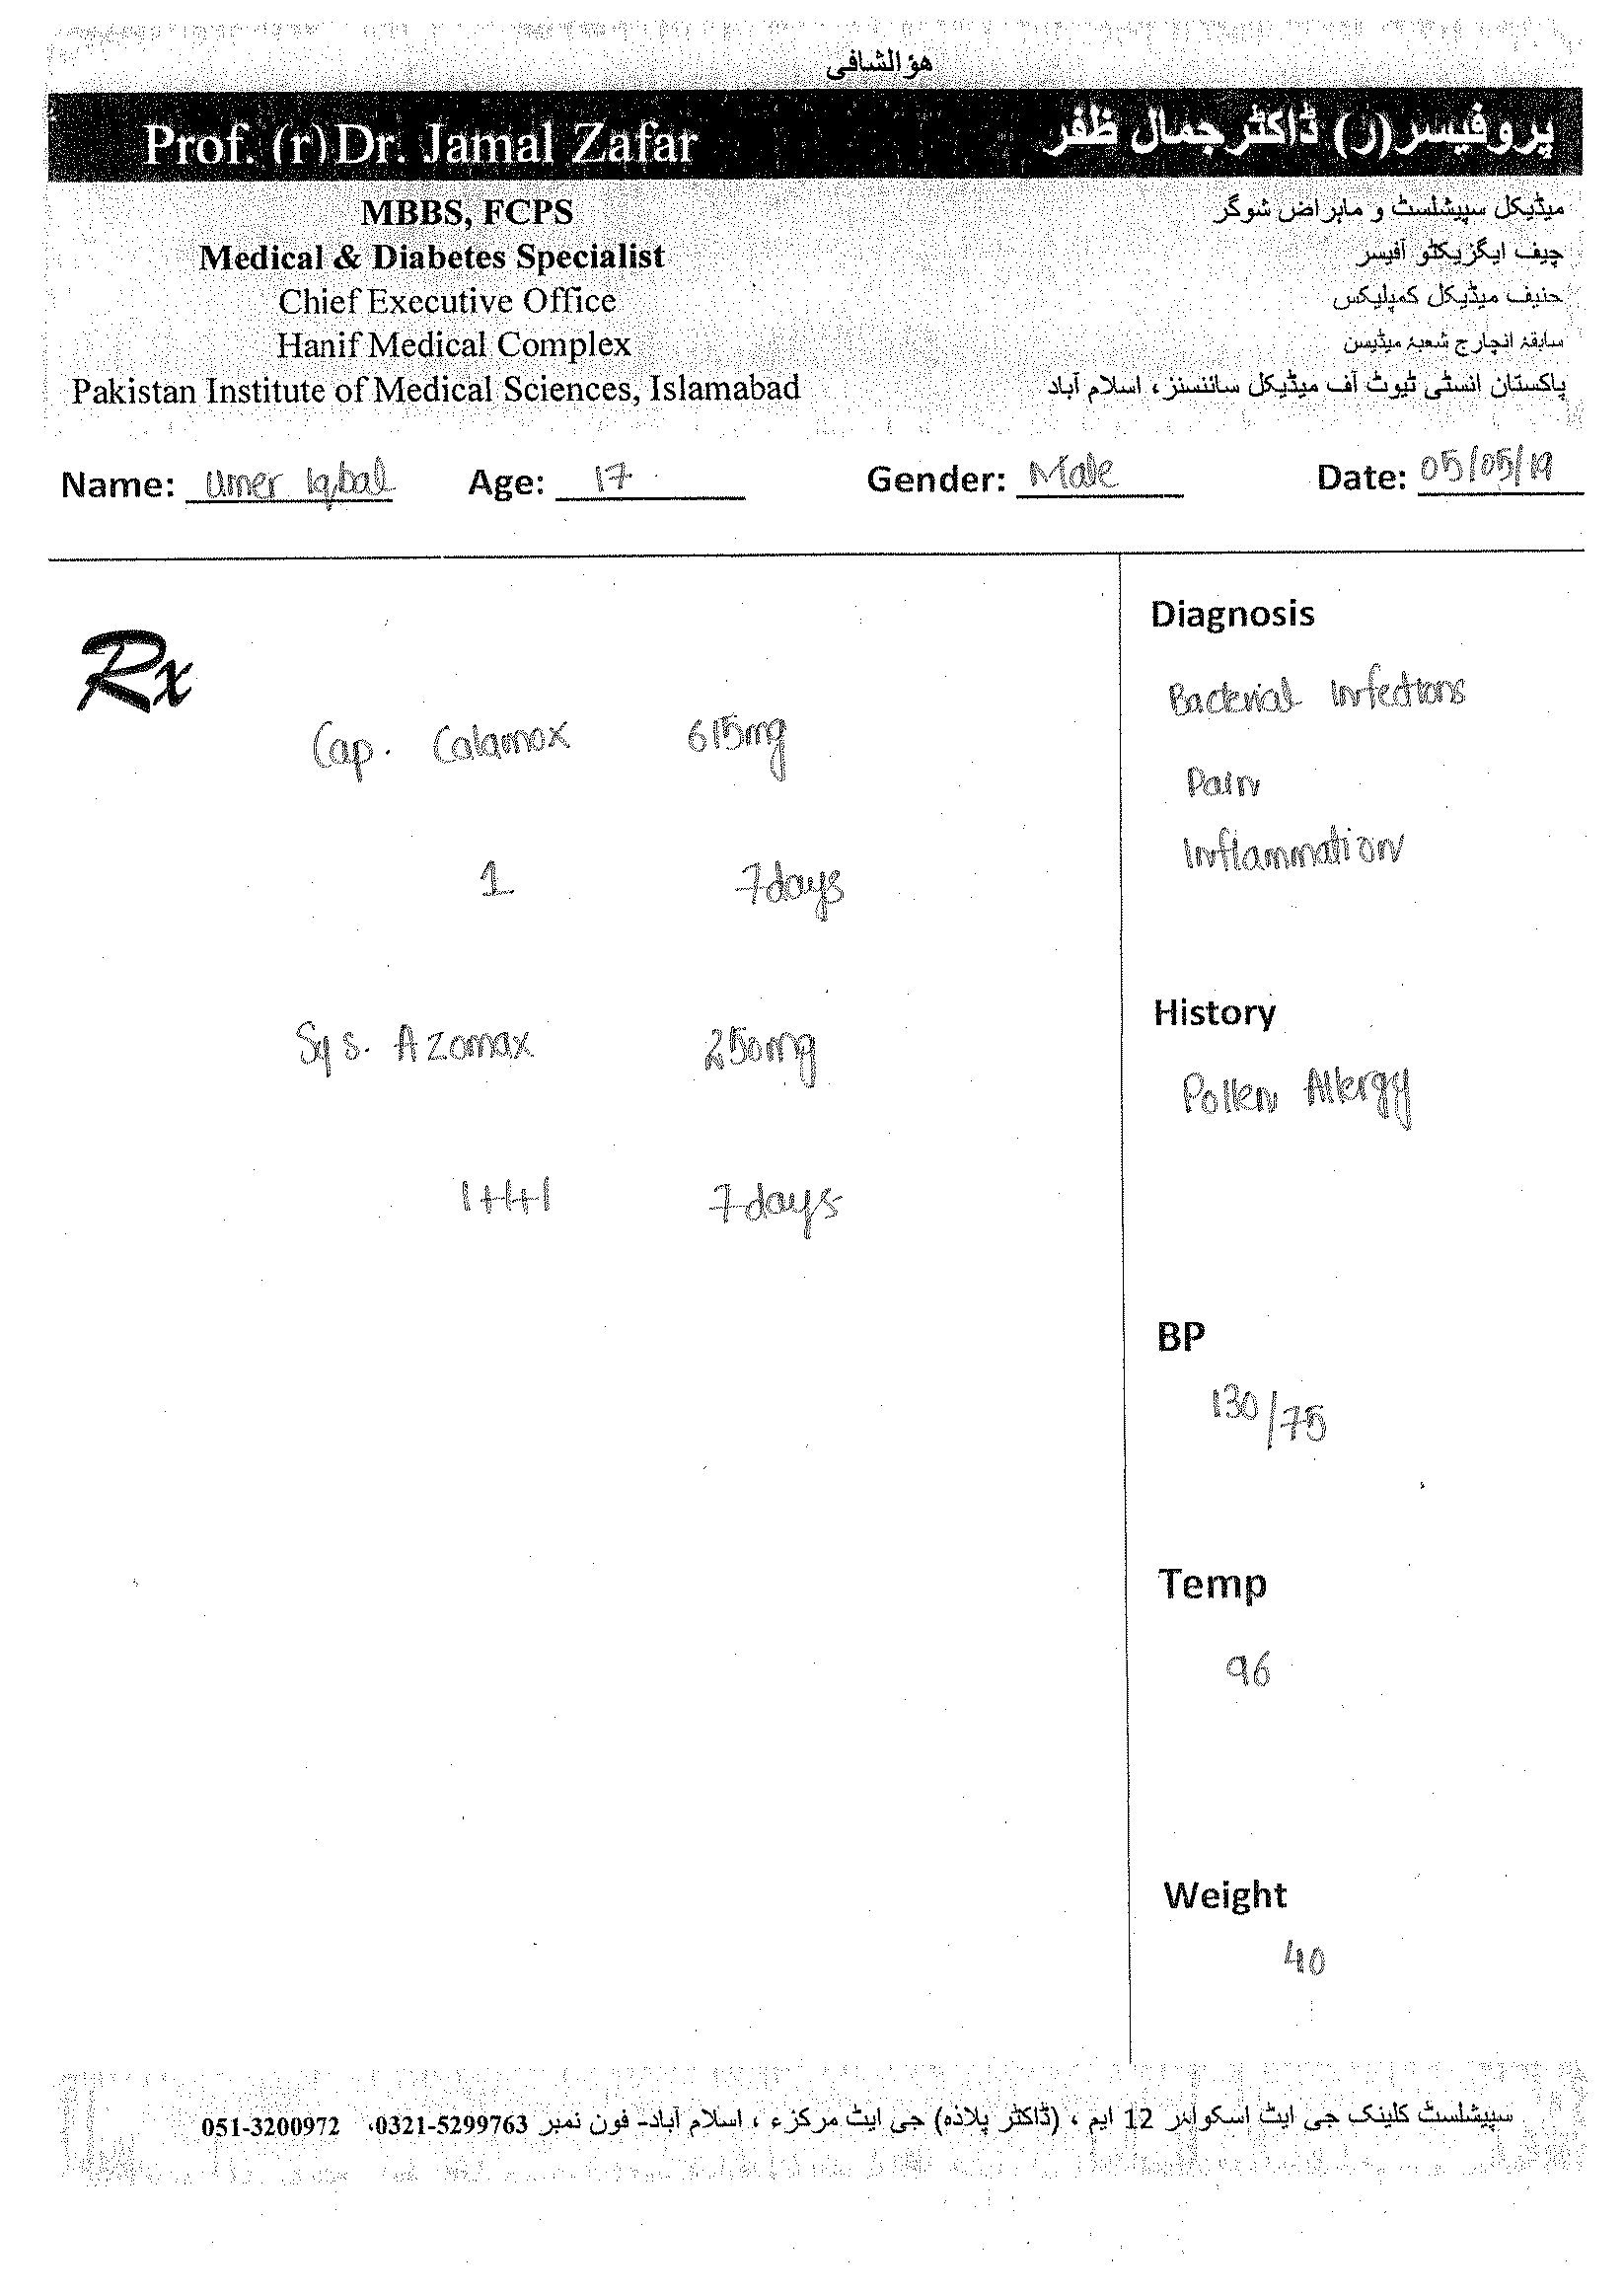 هؤالشافی
Prof. (r) Dr. Jamal Zafar
پروفیسر (ر) ڈاکٹر جمال ظفر
MBBS, FCPS
Medical & Diabetes Specialist
Chief Executive Office
Hanif Medical Complex
Pakistan Institute of Medical Sciences, Islamabad
میڈیکل سپیشلسٹ و ماہراض شوگر
چیف ایگزیکٹو آفیسر
حنیف میڈیکل کمپلیکس
سابقہ انچارج شعبہ میڈیسن
پاکستان انسٹی ٹیوٹ آف میڈیکل سائنسز، اسلام آباد
Name: Umer Iqbal Age: 17 Gender: Male Date: 05/05/19
Rx
Cap. Calamox 615mg
1 7days
Sys. Azomax 250mg
1+1+1 7days
Diagnosis
Bacterial Infections
Pain
Inflammation
History
Pollen Allergy
BP
130/75
Temp
96
Weight
40
سپیشلسٹ کلینک جی ایٹ اسکوائر 12 ایم ، (ڈاکٹر پلاذہ) جی ایٹ مرکزء ، اسلام آباد- فون نمبر 0321-5299763، 051-3200972